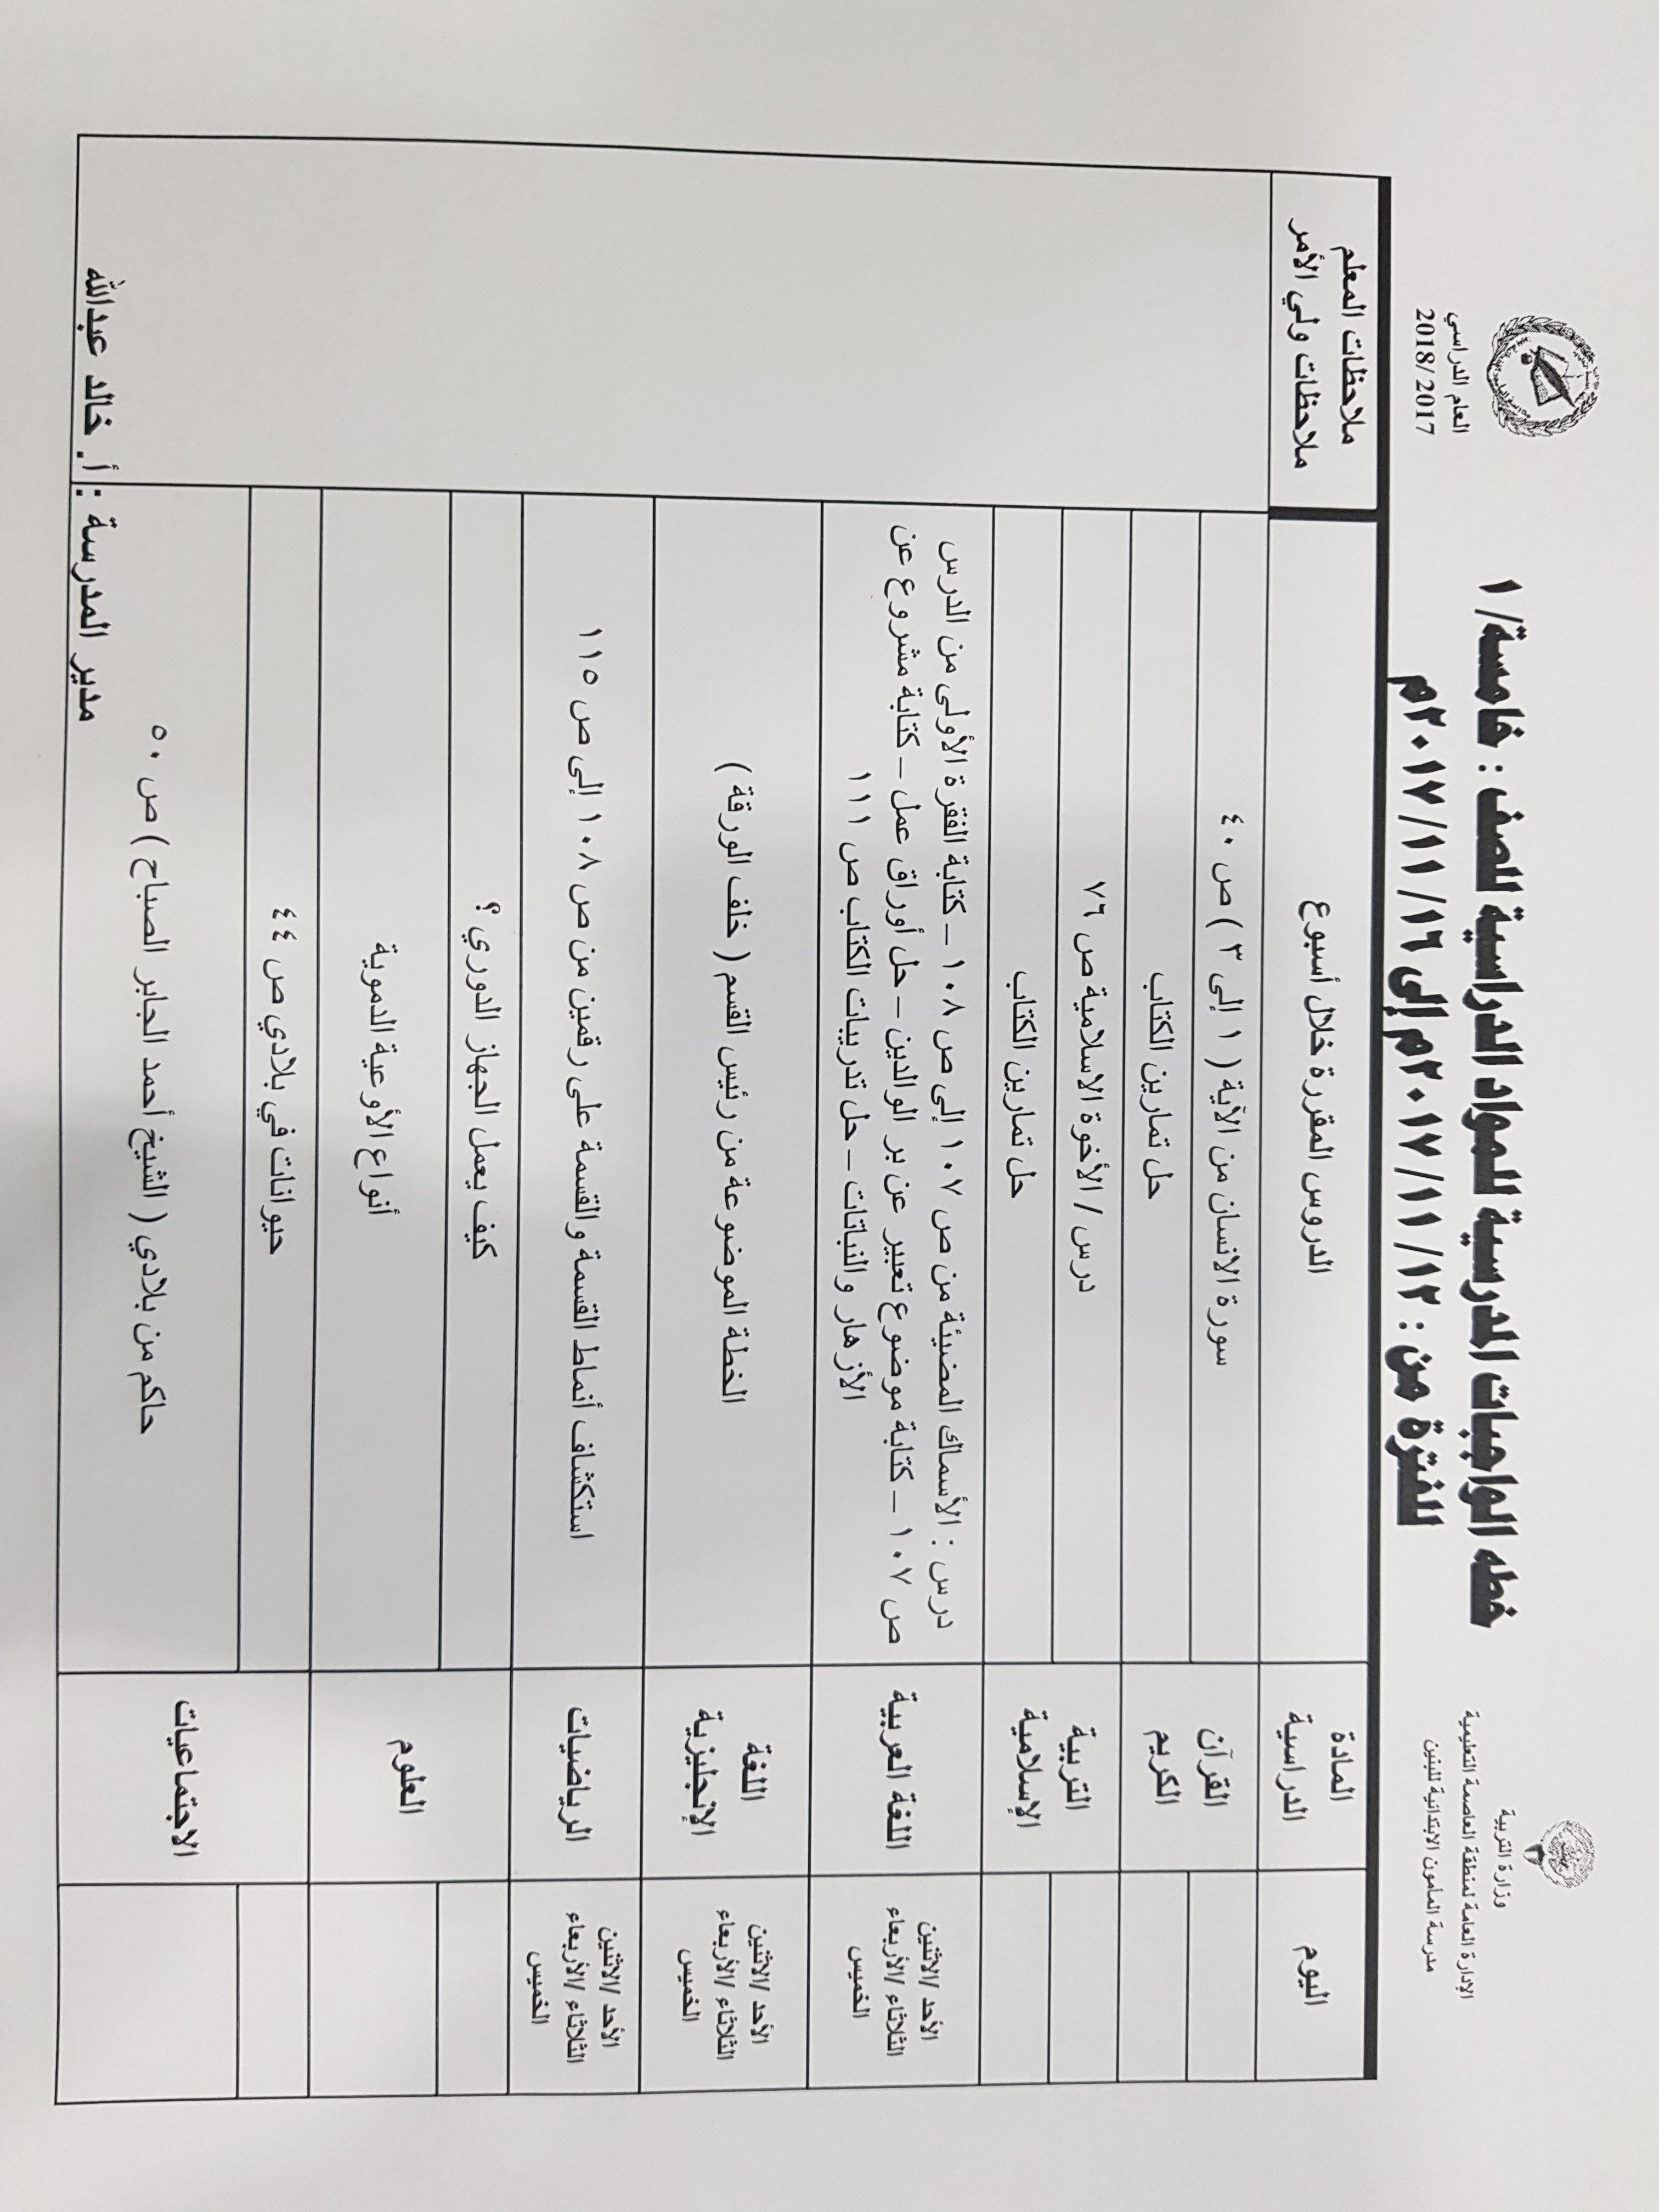 وزارة التربية
الإدارة العامة لمنطقة العاصمة التعليمية
مدرسة المأمون الابتدائية للبنين
خطه الواجبات المدرسية للمواد الدراسية للصف : خامسة/ ١
للفترة من : ١٢ /٢٠١٧/١١م إلى ١٦ /٢٠١٧/١١م
العام الدراسي
2018/2017
اليوم
المادة
الدراسية
الدروس المقررة خلال أسبوع
ملاحظات المعلم
ملاحظات ولي الأمر
القرآن
الكريم
سورة الانسان من الآية ( ١ إلى ٣ ) ص ٤٠
حل تمارين الكتاب
التربية
الإسلامية
درس / الأخوة الاسلامية ص ٧٦
حل تمارين الكتاب
الأحد /الاثنين
الثلاثاء /الأربعاء
الخميس
اللغة العربية
درس : الأسماك المضيئة من ص ١٠٧ إلى ص ١٠٨ – كتابة الفقرة الأولى من الدرس
ص ١٠٧ – كتابة موضوع تعبير عن بر الوالدين – حل أوراق عمل – كتابة مشروع عن
الأزهار والنباتات – حل تدريبات الكتاب ص ١١١
الأحد /الاثنين
الثلاثاء /الأربعاء
الخميس
اللغة
الإنجليزية
الخطة الموضوعة من رئيس القسم ( خلف الورقة )
الأحد /الاثنين
الثلاثاء /الأربعاء
الخميس
الرياضيات
استكشاف أنماط القسمة والقسمة على رقمين من ص ١٠٨ إلى ص ١١٥
العلوم
كيف يعمل الجهاز الدوري ؟
أنواع الأوعية الدموية
الاجتماعيات
حيوانات في بلادي ص ٤٤
حاكم من بلادي ( الشيخ أحمد الجابر الصباح ) ص ٥٠
مدير المدرسة : أ. خالد عبدالله